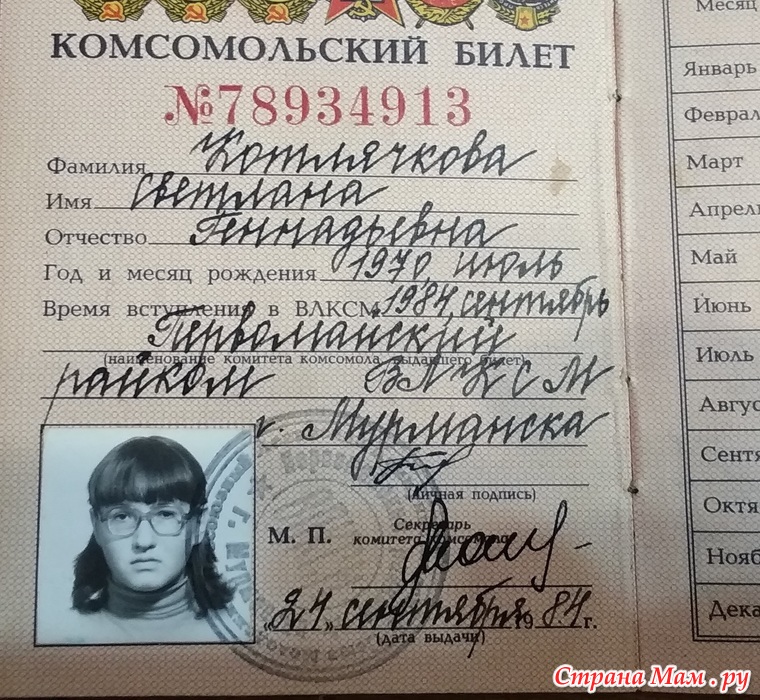 КОМСОМОЛЬСКИЙ БИЛЕТ
№78934913
Фамилия Котлячкова
Имя Светлана
Отчество Геннадьевна
Год и месяц рождения 1970, июль
Время вступления в ВЛКСМ 1984, сентябрь
Первомайский
(наименование комитета комсомола, выдавшего билет)
райком ВЛКСМ
г. Мурманска
(личная подпись)
М. П. Секретарь
комитета комсомола
"24" сентября 1984 г.
(дата выдачи)
Месяц
Январь
Феврал
Март
Апрель
Май
Июнь
Июль
Авгус
Сентя
Октя
Нояб
Дека
Страна Мам.ру